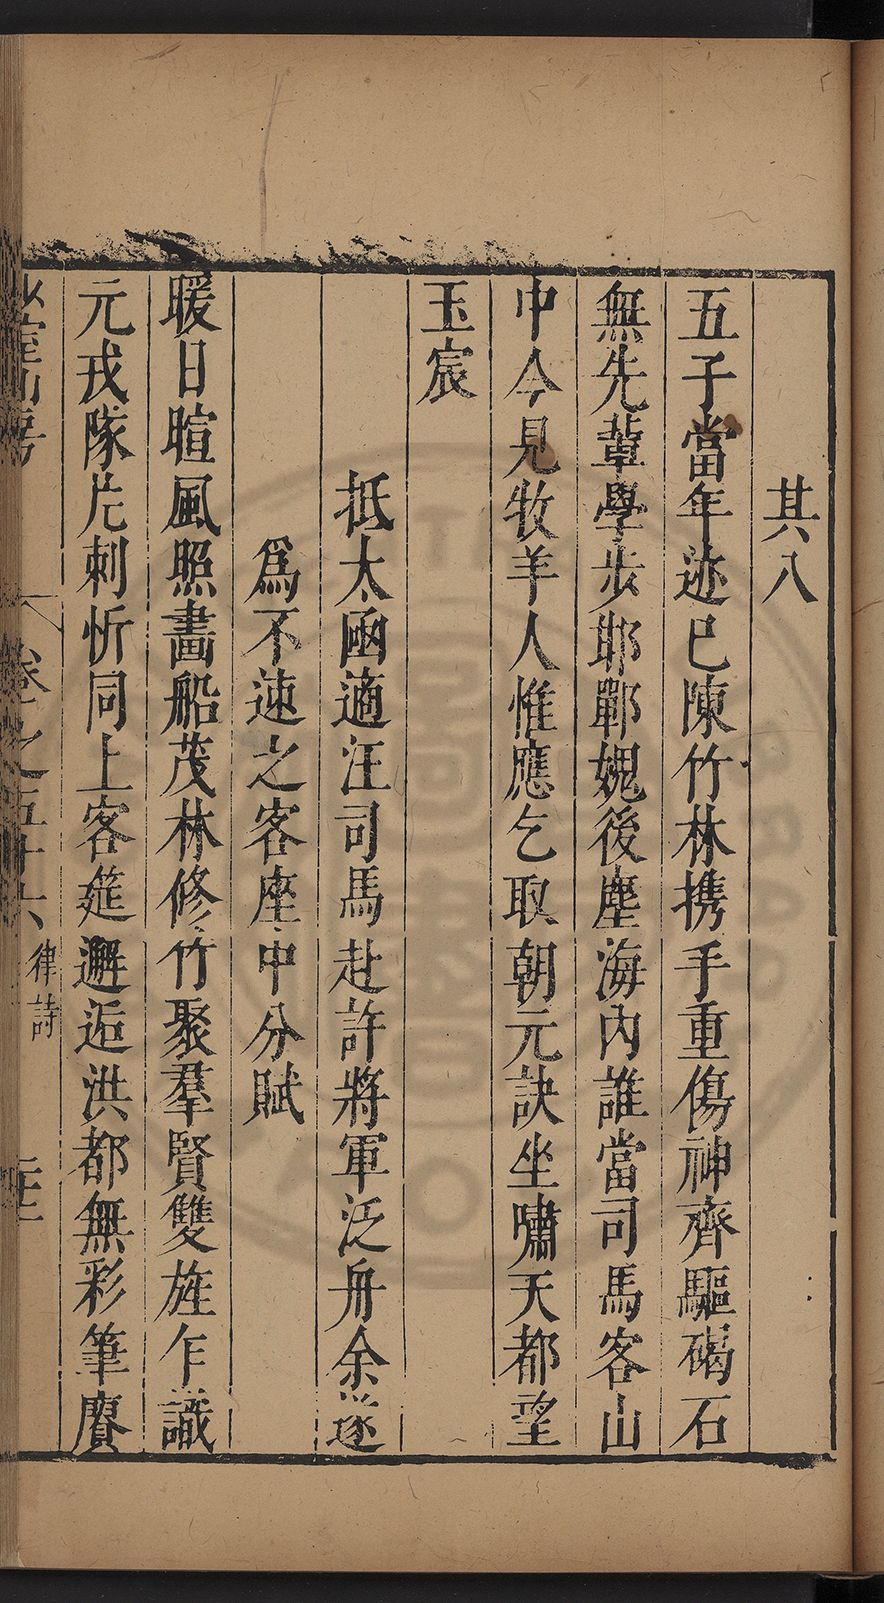 其八
五子當年迹已陳竹林携手重傷神齊驅碣石
無先輩學步耶鄲媿後塵海內誰當司馬客山
中今見牧羊人惟應乞取朝元訣坐嘯天都望
玉宸
抵太函適汪司馬赴許將軍泛舟余遂
爲不速之客座中分賦
暖日暄風照畵船茂林修竹聚羣賢雙旌乍識
元戎隊片刺忻同上客筵邂逅洪都無彩筆賡
少室山房
卷之五十六 律詩